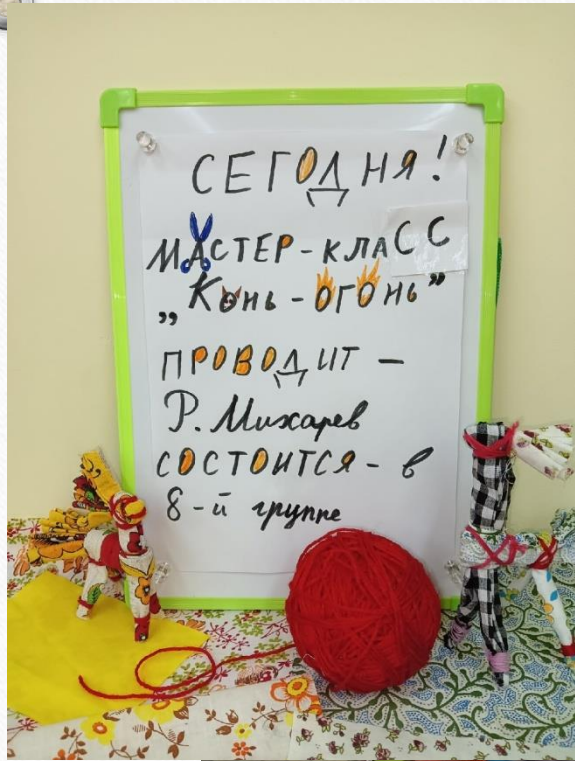 СЕГОДНЯ!
МАСТЕР-КЛАСС
„Конь-ОГОНЬ”
ПРОВОДИТ –
Р. Михарев
СОСТОИТСЯ – в
8-й группе